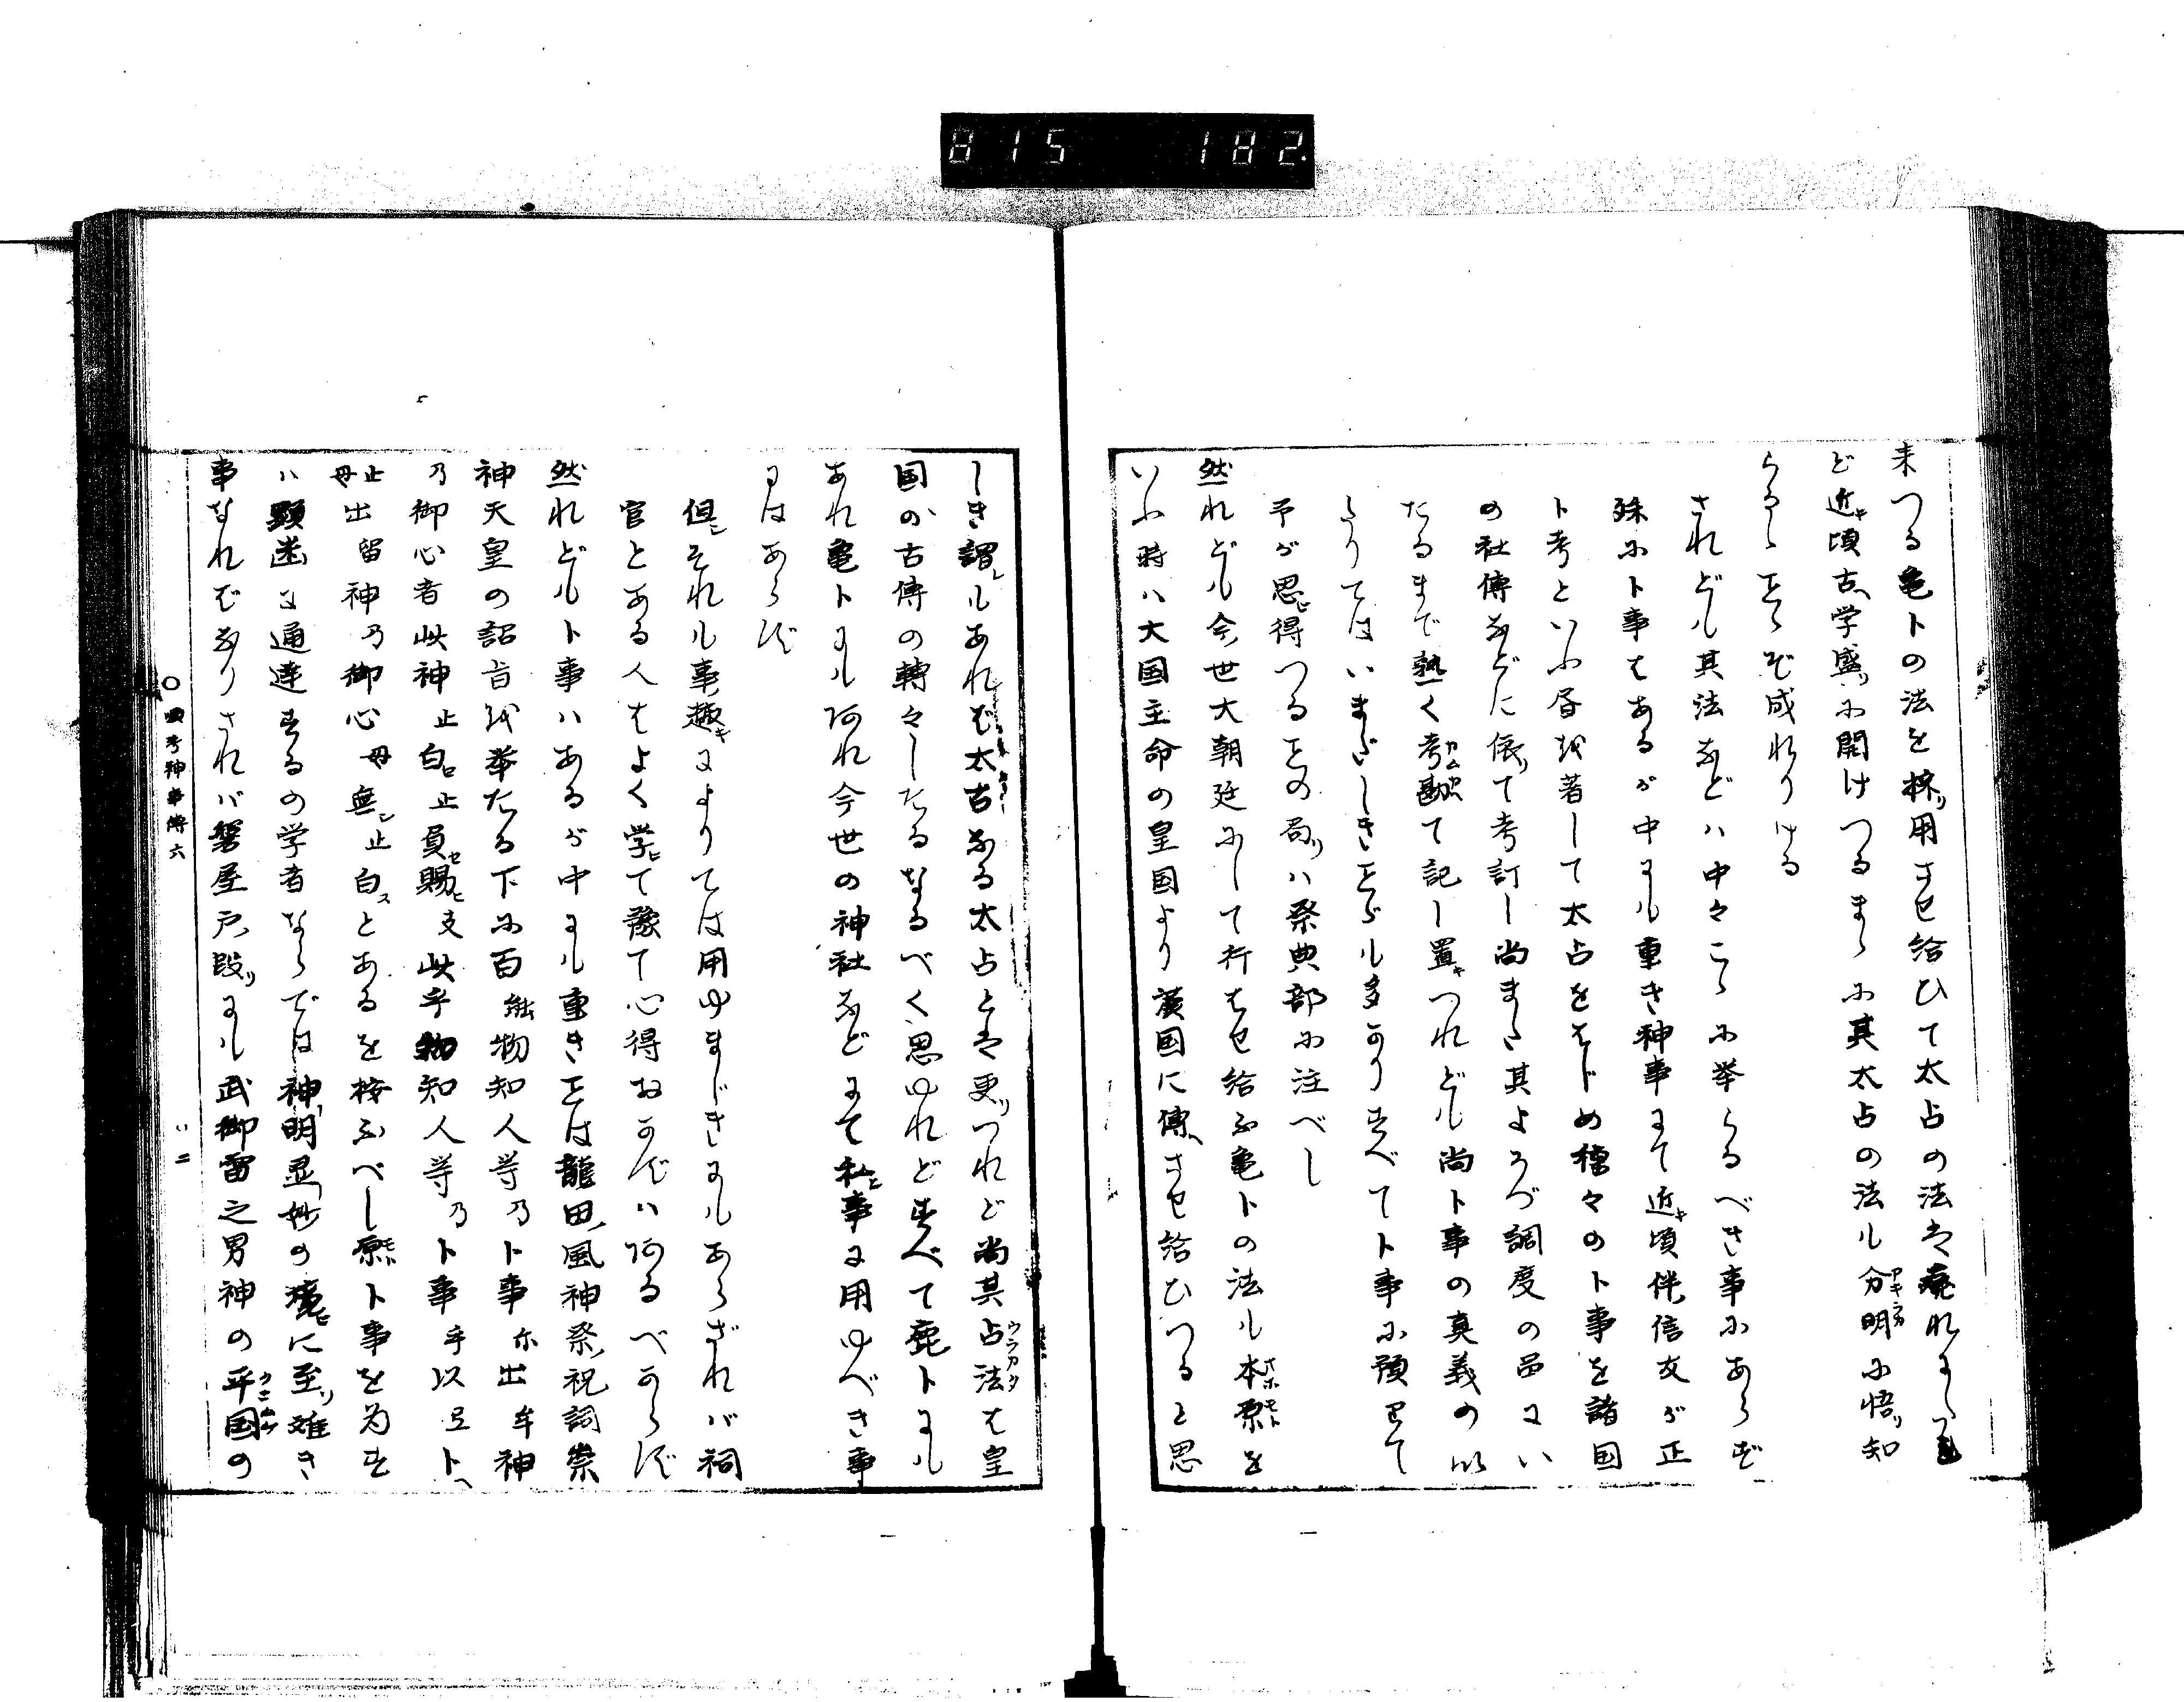 815 182.
来つる亀卜の法を採リ用させ給ひて太占の法は廃れにし
ど近キ頃古ヘ学盛リに開けつるまゝに其太占の法も分明に悟リ知
らるゝことゝぞ成れりける
されども其法などハ中々こゝに挙らるべき事にあらず
殊に卜事はあるが中にも重き神事にて近キ頃伴ノ信友が正
卜考といふ書を著して太占をはじめ種々の卜事を諸国
の社傳などに依リて考訂し尚また其よろづ調度の品にい
たるまで熟く考勘て記し置キつれども尚卜事の真義の
よりてはいまだしきことゞも多かりすべて卜事に預りて
予が思ヒ得つることの局リハ祭典部に注べし
然れども今ノ世大朝廷にして行はせ給ふ亀卜の法も本原を
いふ時ハ大国主命の皇国より漢国に傳ヘさせ給ひつると思
しき謂レもあれば太古なる太占とは更リつれど尚其占法は皇
国の古傳の轉々したるなるべく思ゆれどすべて鹿卜にも
あれ亀卜にも何れ今世の神社などにて私ヒ事に用ゆべき事
にはあらず
但シそれも事ノ趣キによりては用ゆまじきにもあらざれバ祠
官とある人はよく学ヒて豫て心得おかずハあるべからず
然れども卜事ハあるが中にも重きことは龍田ノ風神祭ノ祝詞崇
神天皇の詔旨を挙たる下に百能物知人等乃卜事尓出牟神
乃御心者此神止白止負賜支此乎物知人等乃卜事乎以弖卜
止母出留神乃御心母無止白スとあるを按ふべし原卜事を為す
ハ顕幽に通達するの学者ならでは神明ノ霊妙の境に至リ難き
事なればなりされバ磐屋戸ノ段リにも武御雷之男神の平国の
〇四考神事傳六